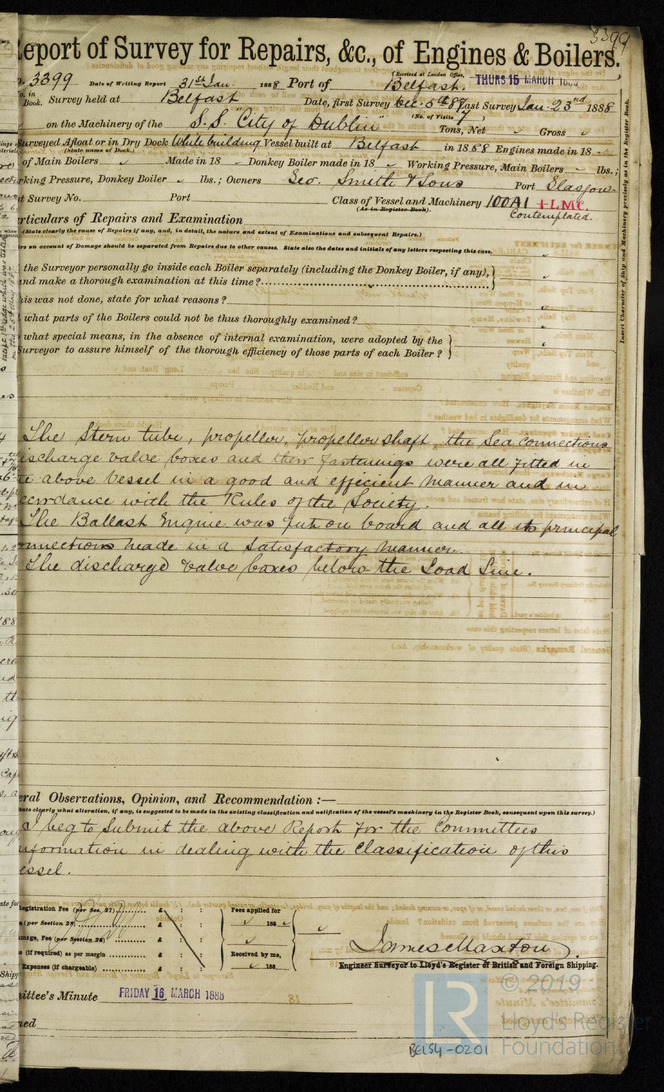 3399
eport of Survey for Repairs, &c., of Engines & Boilers.
(Received at London Office, THURS 15 MARCH 1888
o. 3399 Date of Writing Report 31st Jan 1888 Port of Belfast.
No. in Book. Survey held at Belfast Date, first Survey Dec. 5th 87 Last Survey Jan. 23rd 1888
(No. of Visits 7)
on the Machinery of the S.S. "City of Dublin" Tons, Net Gross
Surveyed Afloat or in Dry Dock While building Vessel built at Belfast in 1888 Engines made in 18
(State name of Dock.)
of Main Boilers Made in 18 Donkey Boiler made in 18 Working Pressure, Main Boilers lbs.;
rking Pressure, Donkey Boiler lbs.; Owners Geo. Smith & Sons Port Glasgow
st Survey No. Port Class of Vessel and Machinery 100A1 + LMC.
(As in Register Book). Contemplated.
articulars of Repairs and Examination
(State clearly the cause of Repairs if any, and, in detail, the nature and extent of Examinations and subsequent Repairs.)
rs on account of Damage should be separated from Repairs due to other causes. State also the dates and initials of any letters respecting this case,
the Surveyor personally go inside each Boiler separately (including the Donkey Boiler, if any),
and make a thorough examination at this time?
his was not done, state for what reasons?
what parts of the Boilers could not be thus thoroughly examined?
what special means, in the absence of internal examination, were adopted by the
Surveyor to assure himself of the thorough efficiency of those parts of each Boiler?
Insert Character of Ship and Machinery precisely as in the Register Book.
The Stern tube, propeller, propeller shaft the Sea connections
ischarge valve boxes and their fastenings were all fitted in
e above Vessel in a good and efficient manner and in
ccordance with the Rules of the Society.
The Ballast Engine was put on board and all its principal
nnections made in a satisfactory manner.
The discharge valve boxes below the Load Line.
eral Observations, Opinion, and Recommendation :—
tate clearly what alteration, if any, is suggested to be made in the existing classification and notification of the vessel's machinery in the Register Book, consequent upon this survey.)
I beg to Submit the above Report for the Committees
nformation in dealing with the Classification of this
essel.
Registration Fee (per Sec. 27) £ : : Fees applied for
(per Section 28) £ : : 188
mage, Fee (per Section 28) £ : :
(if required) as per margin £ : : Received by me,
Expenses (if chargeable) £ : : 188
James Maxton.
Engineer Surveyor to Lloyd's Register of British and Foreign Shipping.
ittee's Minute FRIDAY 16 MARCH 1888
ned
LR © 2019
Lloyd's Register
Foundation
BEL54-0201